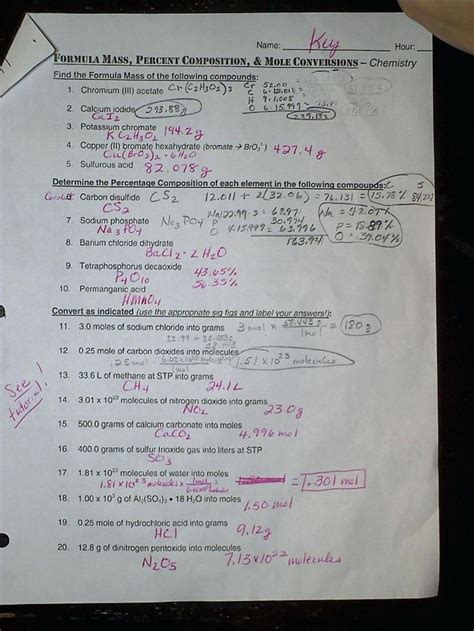 Name: Key Hour:
FORMULA MASS, PERCENT COMPOSITION, & MOLE CONVERSIONS – Chemistry
Find the Formula Mass of the following compounds:
1. Chromium (III) acetate Cr(C2H3O2)3 Cr 52.00
C 6·12.011
H 9·1.008
O 6·15.999
229.13g
2. Calcium iodide 293.88g
CaI2
3. Potassium chromate 194.2g
K2CrO4
4. Copper (II) bromate hexahydrate (bromate → BrO3 1-) 427.4g
Cu(BrO3)2·6H2O
5. Sulfurous acid 82.078g
Determine the Percentage Composition of each element in the following compounds:
Carbon disulfide CS2 12.011 + 2(32.06) = 76.131 C = 15.78% S 84.22%
CS2
7. Sodium phosphate Na3PO4 Na 22.99·3 = 68.97 Na = 42.07%
Na3PO4 P 30.974 P = 18.89%
O 4·15.999 = 63.996 O = 39.04%
163.94
8. Barium chloride dihydrate
BaCl2·2H2O
9. Tetraphosphorus decaoxide 43.65%
P4O10 56.35%
10. Permanganic acid
HMnO4
Convert as indicated (use the appropriate sig figs and label your answers!):
11. 3.0 moles of sodium chloride into grams 3 mol × 58.443g / 1mol = 180g
22.99 + 35.453
58.443
12. 0.25 mole of carbon dioxides into molecules
.25 mol 6.02×10^23 molecules / 1 mol 1.51×10^23 molecules
13. 33.6 L of methane at STP into grams
CH4 24.1L
See tutorial!
14. 3.01 x 10^23 molecules of nitrogen dioxide into grams
NO2 23.0g
15. 500.0 grams of calcium carbonate into moles
CaCO3 4.996 mol
16. 400.0 grams of sulfur trioxide gas into liters at STP
SO3
17. 1.81 x 10^23 molecules of water into moles
1.81×10^23 molecules × 1mol / 6.02×10^23 molecules = .301 mol
18. 1.00 x 10^3 g of Al2(SO4)3 • 18 H2O into moles
1.50 mol
19. 0.25 mole of hydrochloric acid into grams
HCl 9.12g
20. 12.8 g of dinitrogen pentoxide into molecules
N2O5 7.13×10^22 molecules